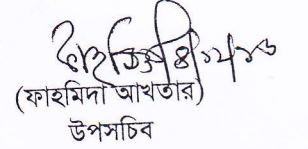 (ফাহমিদা আখতার)
উপসচিব